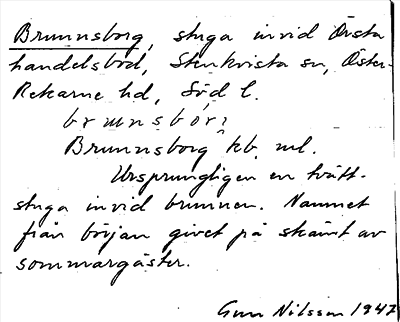 Brunnsborg, stuga invid Örsta
handelsbod, Stenkvista sn, Öster-
Rekarne hd, Söd l.
brunsbórj
Brunnsborg kb. ml.
Ursprungligen en tvätt-
stuga invid brunnen. Namnet
från början givet på skämt av
sommargäster.
Gun Nilsson 1947